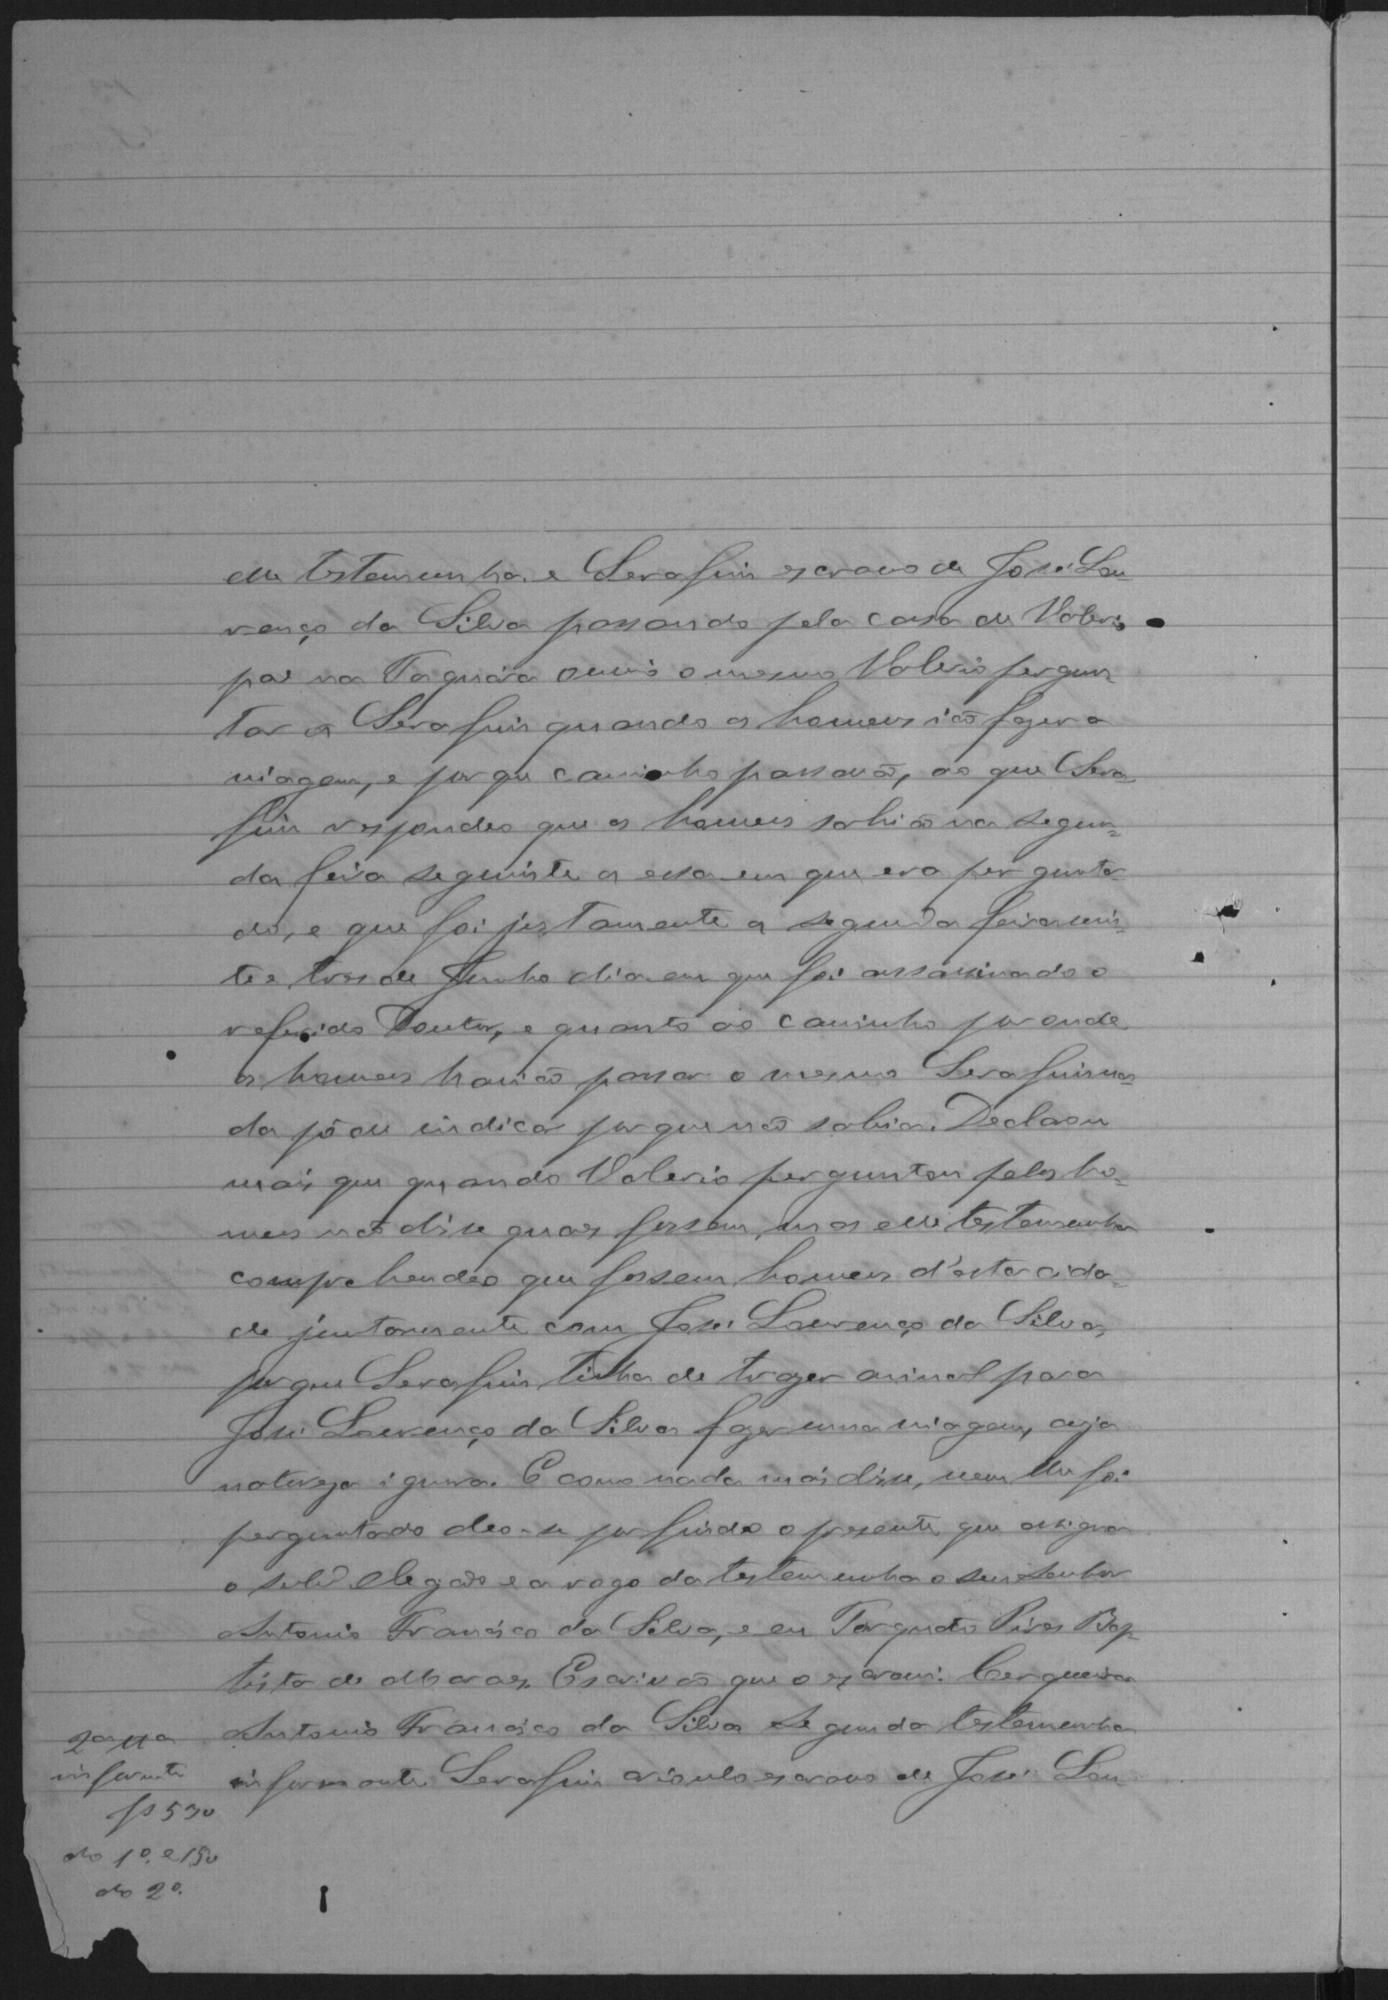 elle testemunha e Serafim escravo de José Lou
renço da Silva passando pela casa de Valerio
pae na Taquára ouvio o mesmo Valerio pergun-
tar a Serafim quando os homens ião fazer a
viagem, e por que caminho passavão, ao que Sera
fim respondeo que os homens sahião na segun-
da feira seguinte a essa em que era pergunta-
do, e que foi justamente a segunda feira vin-
te e tres de Junho dia em que foi assassinado o
referido Doutor, e quanto ao caminho por onde
os homens havião passar o mesmo Serafim na-
da póde indicar porque não sabia. Declarou
mais que quando Valerio perguntou pelos ho-
mens não disse quaes fossem, mas elle testemunha
comprehendeo que fossem homens d'esta cida-
de juntamente com José Lourenço da Silva,
porque Serafim tinha de trazer animal para
José Lourenço da Silva fazer uma viagem, cuja
natureza ignora. E como nada mais disse, nem lhe foi
perguntado deo-se por findo o presente, que assigna
o subdelegado e a rogo da testemunha o seu senhor
Antonio Francisco da Silva, e eu Torquato Pires Bap
tista de Moraes, Escrivão que o escrevi. Cerqueira
Antonio Francisco da Silva Segunda testemunha
informante Serafim crioulo escravo de José Lou
2ª ttª
informante
fs 530
do 1º. e 150
do 2º.